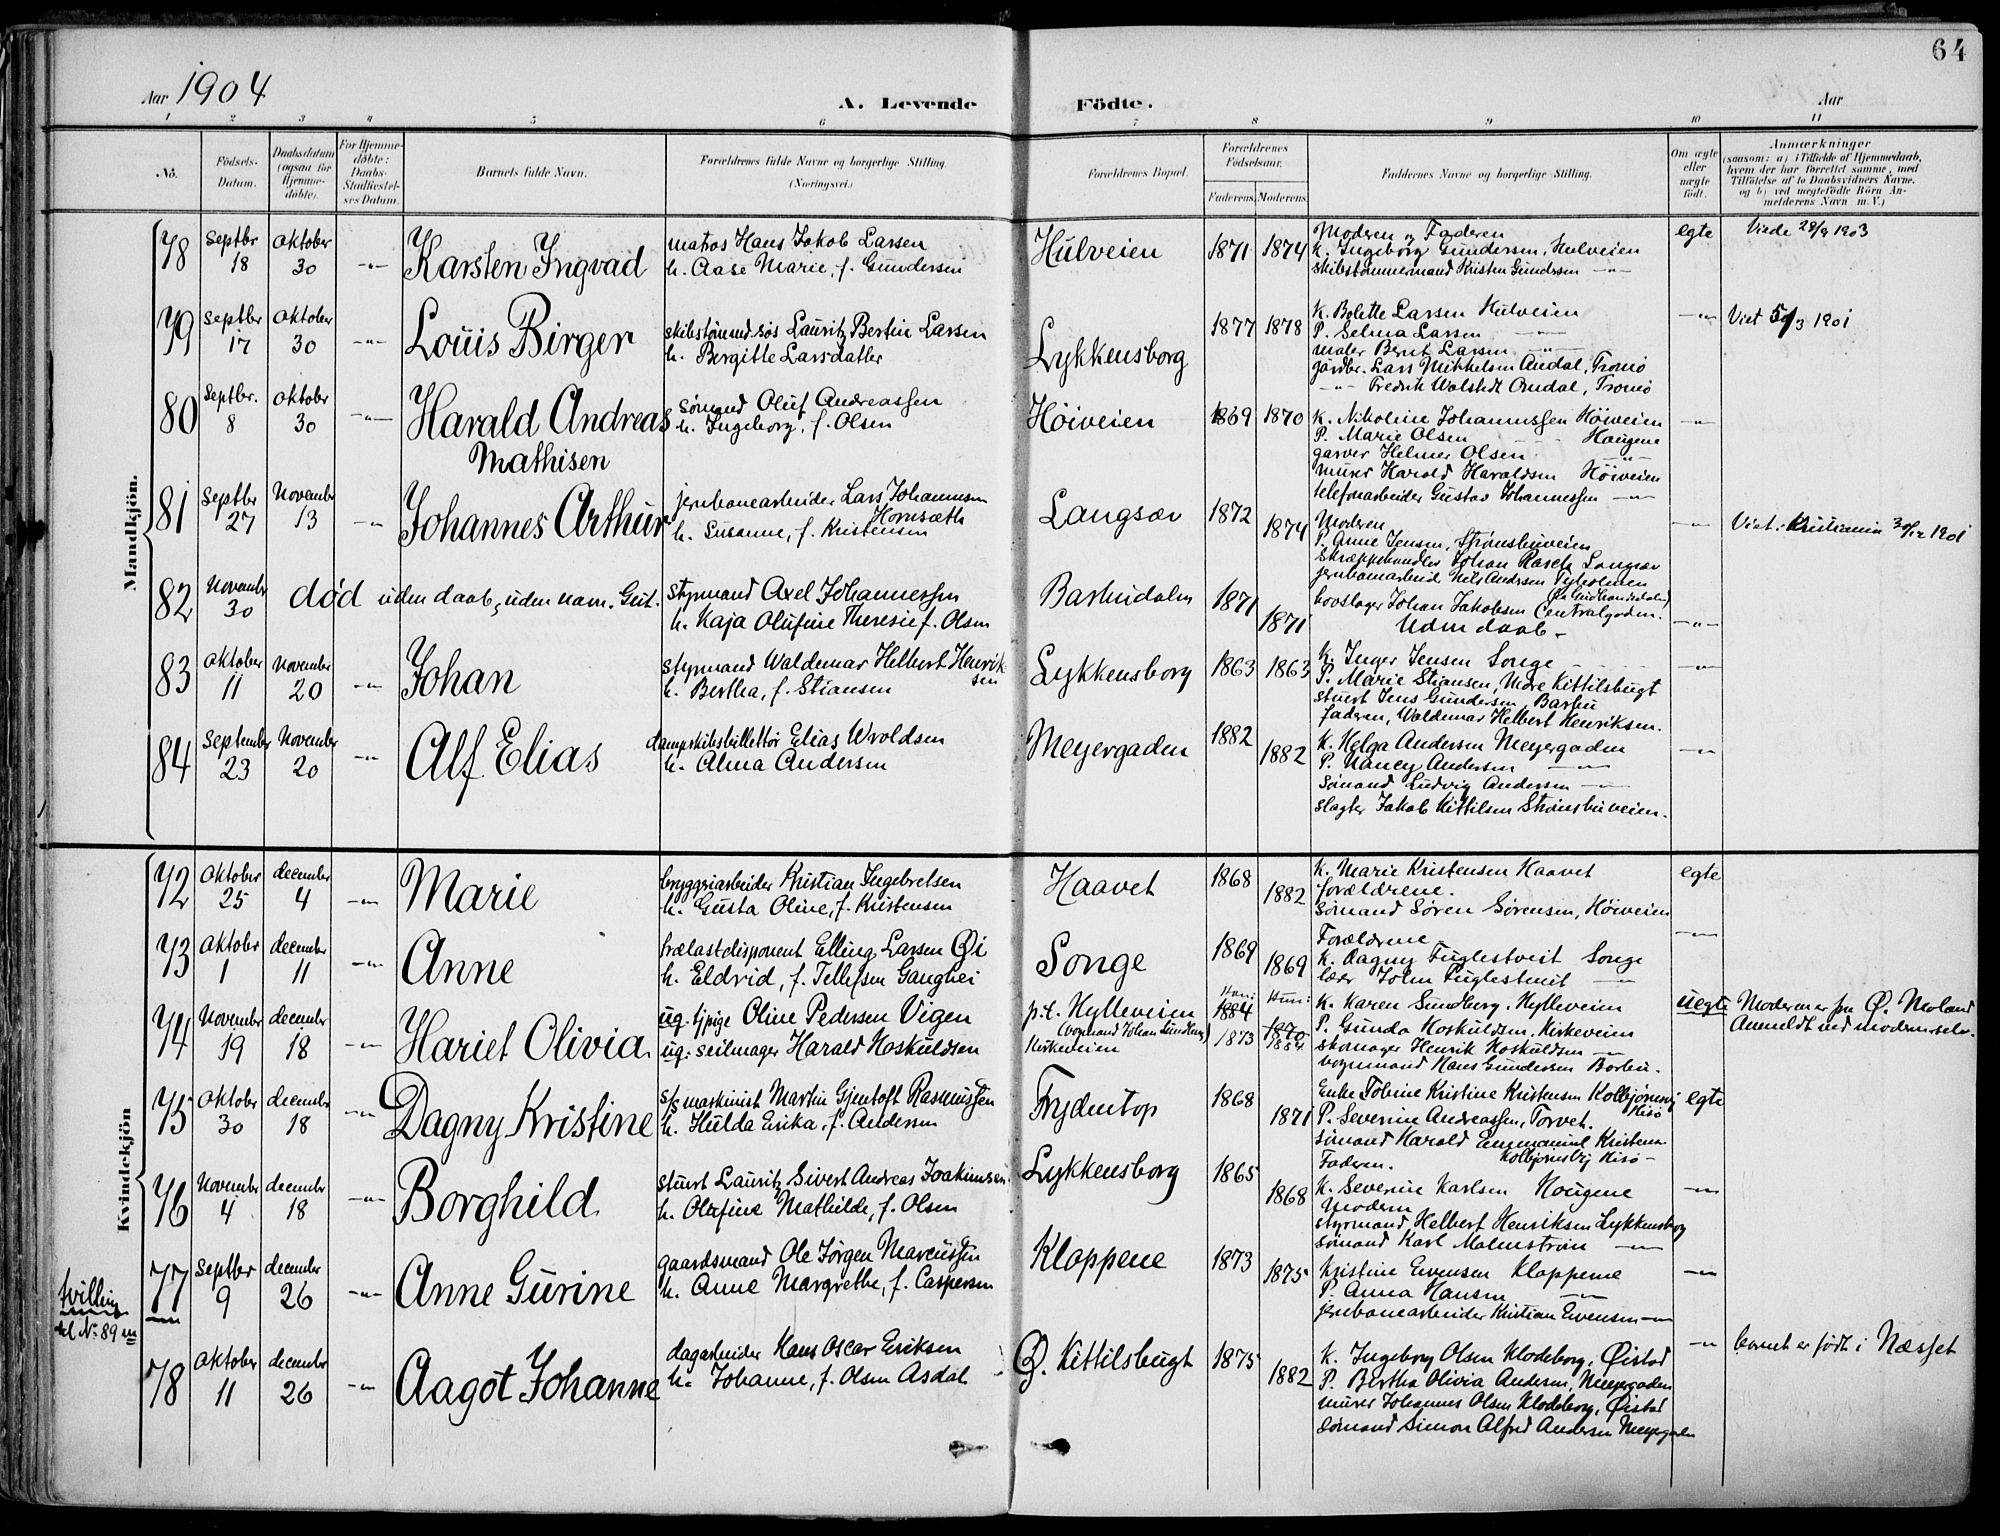 64
Aar 1904
A. Levende Födte.
Aar
1 2 3 4 5 6 7 8 9 10 11
No.
Födsels-Datum.
Daabsdatum (ogsaa for Hjemmedöbte).
For Hjemmedöbte: Daabs-Stadfæstelses Datum.
Barnets fulde Navn.
Forældrenes fulde Navne og borgerlige Stilling. (Næringsvei.)
Forældrenes Bopæl.
Forældrenes Födselsaar.
Faderens. Moderens.
Faddernes Navne og borgerlige Stilling.
Om ægte eller uægte födt.
Anmærkninger
(saasom: a) i Tilfælde af Hjemmedaab, hvem der har forrettet samme, med Tilföielse af to Daabsvidners Navne, og b) ved uægtefödte Börn Anmelderens Navn m. V.)
Mandkjön.
78 Septbr 18 Oktober 30 -"- Karsten Ingvad
matros Hans Jakob Larsen
h. Aase Marie, f. Gundersen
Hulveien 1871 1874
Moderen og Faderen
K. Ingeborg Gundersen, Hulveien
skibstømmermand Kristen Gundersen -"-
egte Viede 29/9 1903
79 Septbr 17 Oktober 30 -"- Louis Birger
Lauritz Bertin Larsen
h. Birgitte Larsdatter
Lykkensborg 1877 1878
K. Bolette Larsen Hulveien
P. Selma Larsen -"-
maler Bernt Larsen -"-
gårdbr. Lars Mikkelsen Andal, Tromö
-"- Fredrik Walstedt Andal, Tromö
-"- Viet 5/3 1901
80 Septbr. 8 Oktober 30 -"- Harald Andreas
Mathisen
sømand Oluf Andreassen
h. Ingeborg, f. Olsen
Höiveien 1869 1870
K. Nikoline Johannessen Höiveien
P. Marie Olsen Haugene
garver Helmer Olsen -"-
murer Harald Haraldsen Höiveien
telefonarbeider Gustav Johannessen -"-
-"-
81 Septbr 27 November 13 -"- Johannes Arthur
jernbanearbeider Lars Johannesen
Hornsæth
h. Susanne, f. Kristensen
Langsæv 1872 1874
Moderen
P. Anne Jensen, Strömsbuveien
Johan Langsæv
Nils Andersen Tyholmen
-"- Viet i Kristiania 30/12 1901
82 November 30 död uden daab, uden navn. Gut.
styrmand Axel Johannessen
h. Kaja Olufine Theresie f. Olsen
Barbudalen 1871 1871
hovslager Johan Jakobsen Centralgaden.
Uden daab -
-"-
83 Oktober 11 November 20 -"- Johan
styrmand Waldemar Helbert Henriksen
h. Bertha, f. Stiansen
Lykkensborg 1863 1863
K. Inger Jensen Songe
P. Marie Stiansen, Nedre Kittilsbugt
stuert Jens Gundersen, Barbu
faderen, Waldemar Helbert Henriksen.
-"-
84 September 23 November 20 -"- Alf Elias
dampskibsbillettör Elias Wroldsen
h. Alma Andersen
Meyergaden 1882 1882
K. Helga Andersen Meyergaden
P. Nancy Andersen -"-
Sömand Ludvig Andersen -"-
slagter Jakob Kittilsen Strömsbuveien.
-"-
Kvindekjön
72 Oktober 25 december 4 -"- Marie
bryggeriarbeider Kristian Ingebretsen
h. Gusta Oline, f. Kristensen
Haavet 1868 1882
K. Marie Kristensen Haavet
forældrene.
Sömand Sören Sörensen, Höiveien
egte
73 Oktober 1 december 11 -"- Anne
trælastdisponent Elling Larsen Öi
h. Eldrid, f. Tellefsen
Songe 1869 1869
Forældrene
K. Dagny Fuglestveit Songe
John Fuglestveit -"-
-"-
74 November 19 december 18 -"- Hariet Olivia.
ug. tjpige Oline Pedersen Vigen
ug. seilmager Harald Hoskuldsen
p.t. Hylleveien
(vognmand Johan Sundberg)
Kirkeveien
1884 1873
K. Karen Sundberg, Hylleveien
P. Gunda Hoskuldsen, Kirkeveien
skomager Henrik Hoskuldsen -"-
vognmand Hans Gundersen Barbu.
uegte Moderen er fra Ö. Moland
Anmeldt ved moderen selv.
75 Oktober 30 december 18 -"- Dagny Kristine
s/s maskinist Martin Gjentoft Rasmussen
h. Hulda Erika, f. Andersen
Frydentop 1868 1871
Enke Tobine Kristine Kristensen Kolbjörnsvig Hisö
P. Severine Andreassen, Torvet.
Sömand Harald Emmanuel Kristensen
Kolbjörnsvig Hisö -
Faderen.
egte
76 November 4 december 18 -"- Borghild
stuert Lauritz Sivert Andreas Joakimsen
h. Olufine Mathilde, f. Olsen
Lykkensborg 1865 1868
K. Severine Karlsen Hougene
Moderen
styrmand Helbert Henriksen Lykkensborg
sömand Karl Malmström -"-
-"-
tvilling
til No. 89 m
77 Septbr 9 december 26 -"- Anne Gurine
gaardsmand Ole Jörgen Marcussen
h. Anne Margrethe, f. Caspersen
Kloppene 1873 1875
Kristine Evensen Kloppene
P. Anna Hansen -"-
jernbanearbeider Kristian Evensen -"-
-"-
78 Oktober 11 december 26 -"- Aagot Johanne
dagarbeider Hans Oscar Eriksen
h. Johanne, f. Olsen Asdal
Ö. Kittilsbugt 1875 1882
K. Ingeborg Olsen Klodeborg, Öistad
P. Bertha Olivia Andersen, Meyergaden
murer Johannes Olsen Klodeborg, Öistad
sömand Simon Alfred Andersen Meyergaden
-"- barnet er födt i Næsset